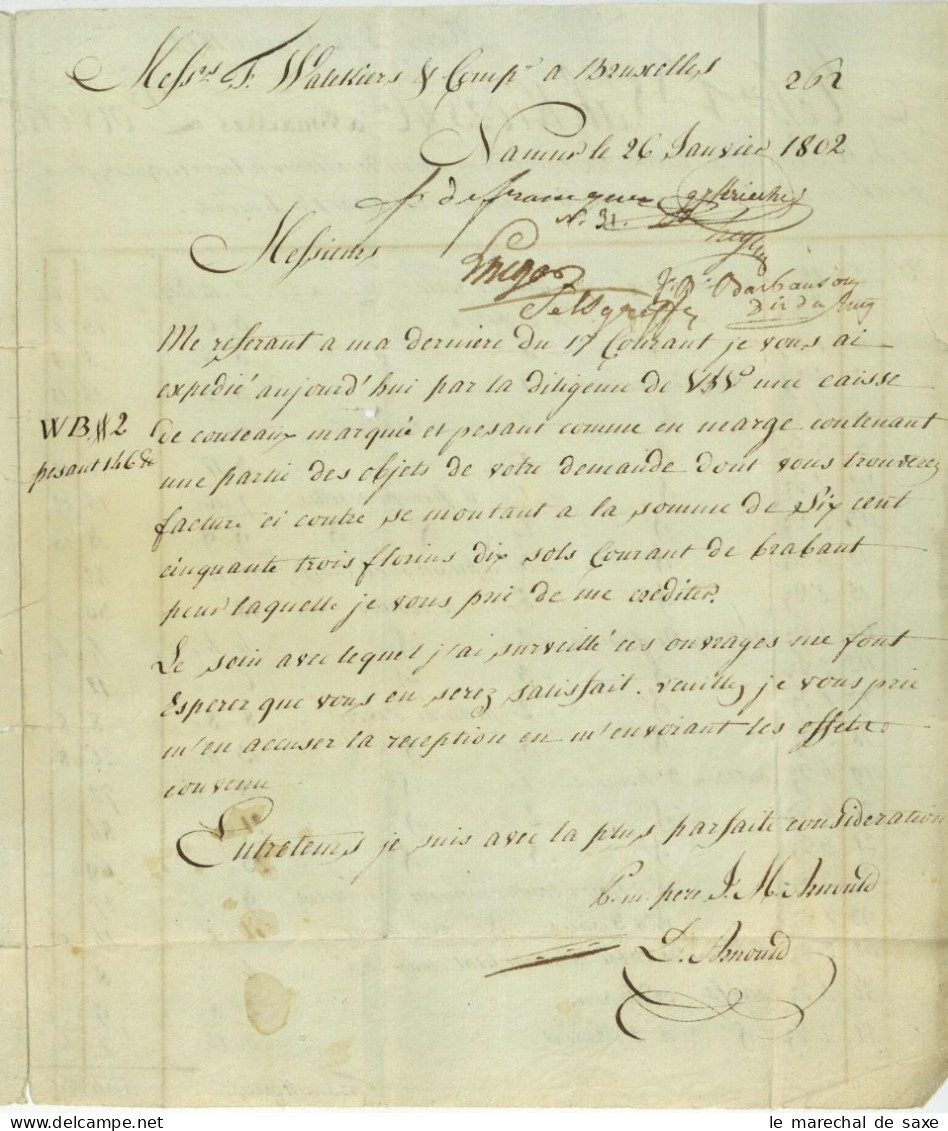 Messrs F. Walckiers & Compe a Bruxelles 262
Namur le 26 Janvier 1802
N. 31.
Messieurs
Me referant a ma derniere du 17 Courant je vous ai
expedié aujourd'hui par la diligeme de une caisse
WB # 2
pesant 146 lb
de couteaux marquée et pesant comme en marge contenant
une partie des objets de votre demande dont vous trouverez
facture ci contre se montant a la somme de Six cent
cinquante trois florins dix sols Courant de brabant
pour laquelle je vous prie de me créditer.
Le soin avec lequel j'ai surveillé ces ouvrages me font
Esperer que vous en serez satisfait. veuillez je vous prie
m'en accuser la reception en m'envoiant les effets
convenu
Entretems je suis avec la plus parfaite consideration
P. m. pere J. M. Arnould
L. Arnould
le marechal de saxe